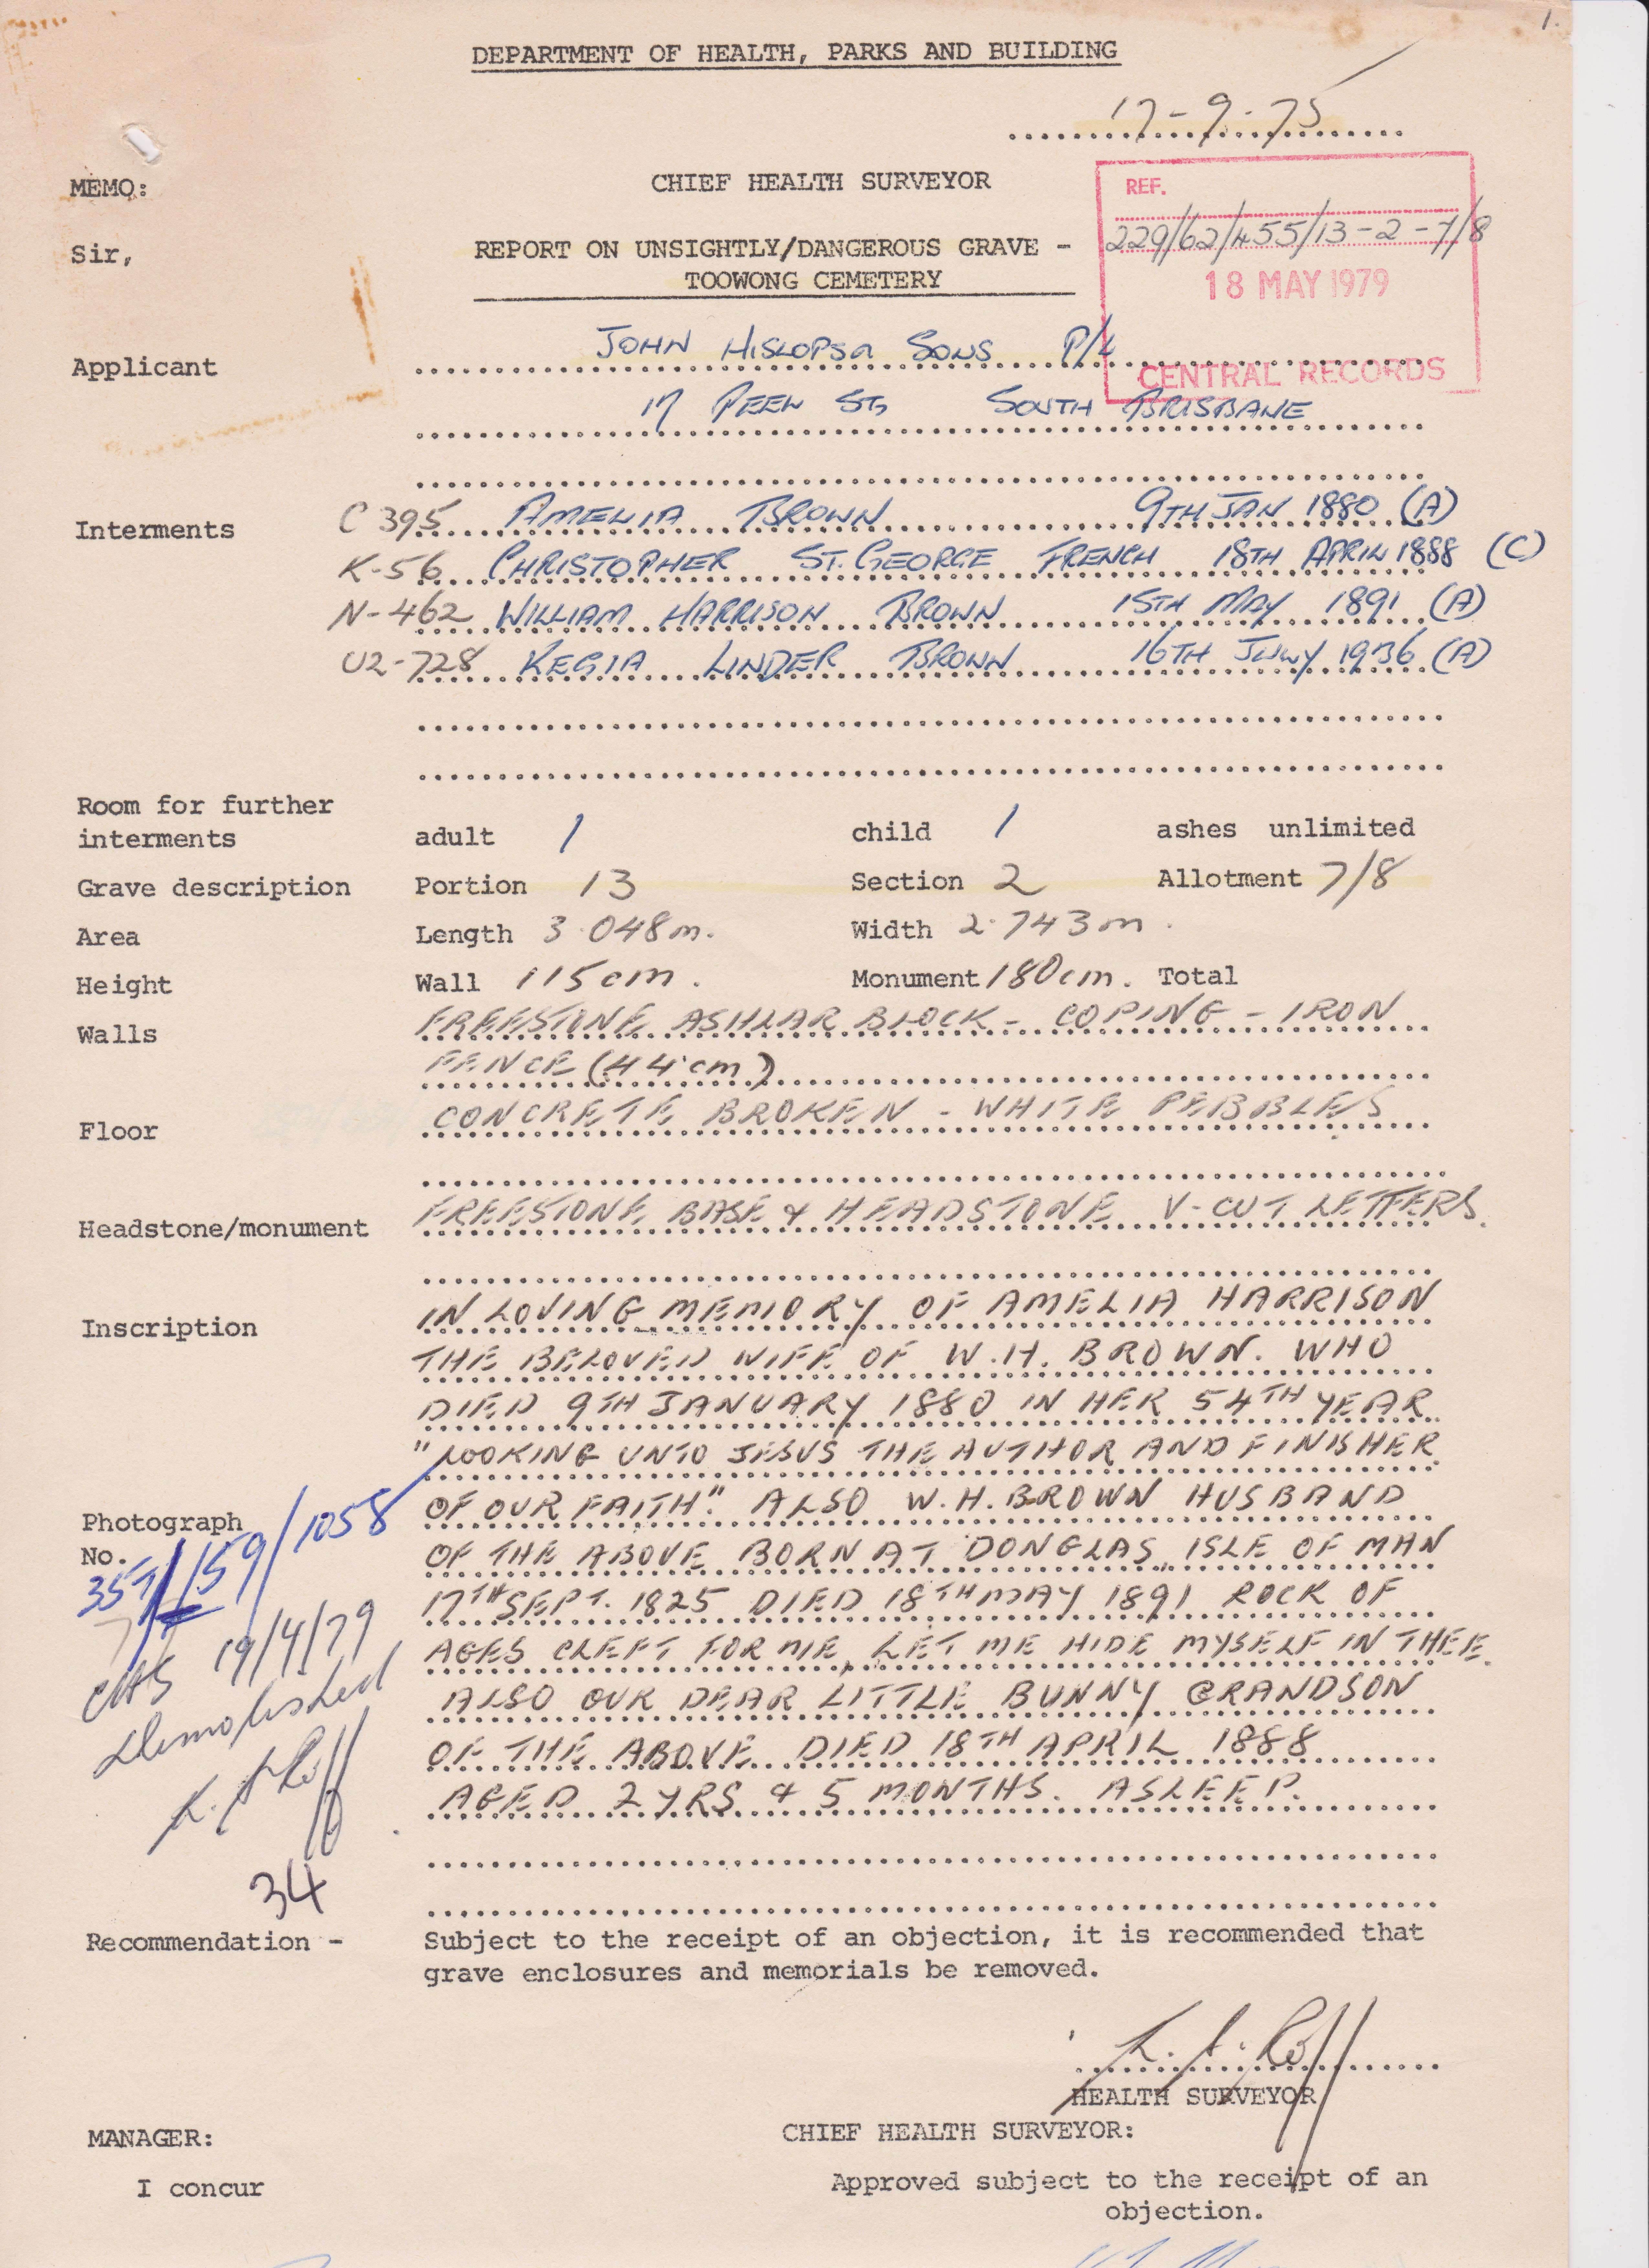 1.
DEPARTMENT OF HEALTH, PARKS AND BUILDING
17-9-75
MEMO: CHIEF HEALTH SURVEYOR
REF.
229/62/455/13-2-7/8
18 MAY 1979
CENTRAL RECORDS
Sir, REPORT ON UNSIGHTLY/DANGEROUS GRAVE -
TOOWONG CEMETERY
Applicant JOHN HISLOPSA SONS P/L
17 PEEL ST, SOUTH BRISBANE
Interments C 395 AMELIA BROWN 9TH JAN 1880 (A)
K-56 CHRISTOPHER ST. GEORGE FRENCH 18TH APRIL 1888 (C)
N-462 WILLIAM HARRISON BROWN 15TH MAY 1891 (A)
U2-728 KEGIA LINDER BROWN 16TH JULY 1936 (A)
Room for further
interments adult 1 child 1 ashes unlimited
Grave description Portion 13 Section 2 Allotment 7/8
Area Length 3.048m. Width 2.743m.
Height Wall 115cm. Monument 180cm. Total
Walls FREESTONE ASHLAR BLOCK - COPING - IRON
FENCE (44cm)
Floor CONCRETE BROKEN - WHITE PEBBLES
Headstone/monument FREESTONE BASE & HEADSTONE V-CUT LETTERS.
Inscription IN LOVING MEMORY OF AMELIA HARRISON
THE BELOVED WIFE OF W.H. BROWN. WHO
DIED 9TH JANUARY 1880 IN HER 54TH YEAR
"LOOKING UNTO JESUS THE AUTHOR AND FINISHER
OF OUR FAITH". ALSO W.H. BROWN HUSBAND
OF THE ABOVE BORN AT DONGLAS ISLE OF MAN
17TH SEPT. 1825 DIED 18TH MAY 1891 ROCK OF
AGES CLEFT FOR ME, LET ME HIDE MYSELF IN THEE.
ALSO OUR DEAR LITTLE BUNNY GRANDSON
OF THE ABOVE DIED 18TH APRIL 1888
AGED 2 YRS & 5 MONTHS. ASLEEP.
Photograph
No.
159/1058
19/4/79
Demolished
34
Recommendation - Subject to the receipt of an objection, it is recommended that
grave enclosures and memorials be removed.
HEALTH SURVEYOR
MANAGER: CHIEF HEALTH SURVEYOR:
I concur Approved subject to the receipt of an
objection.